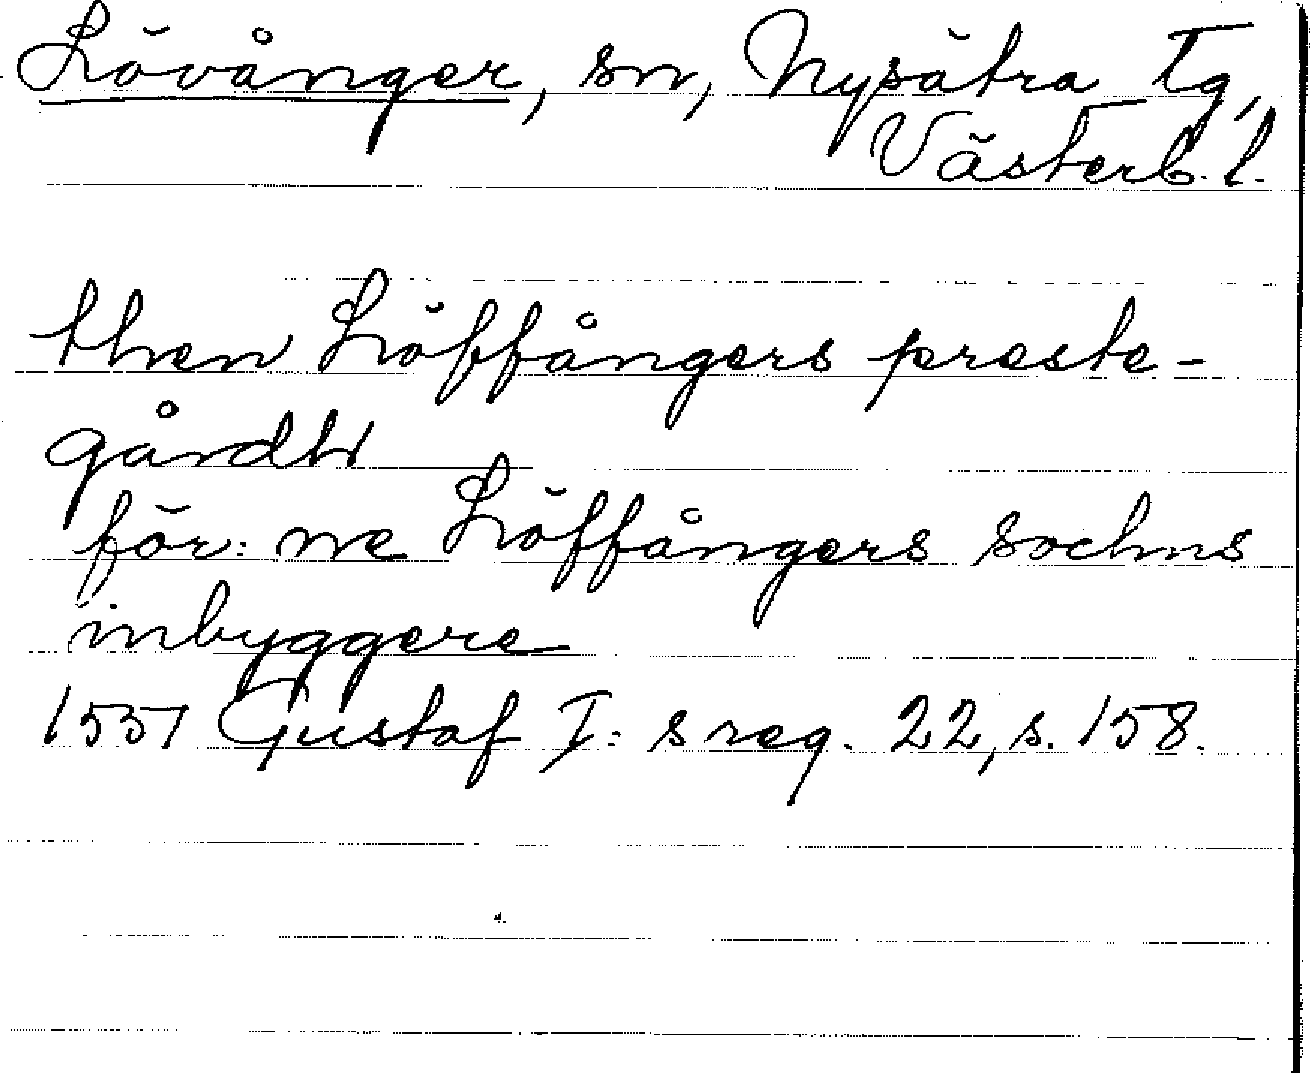 Lövånger, sn, Nysätra tg,
Västerb. l.
then Löffångers preste-
gårdh
för: ne Löffångers sochns
inbyggere
1551 Gustaf I: s reg. 22, s. 158.